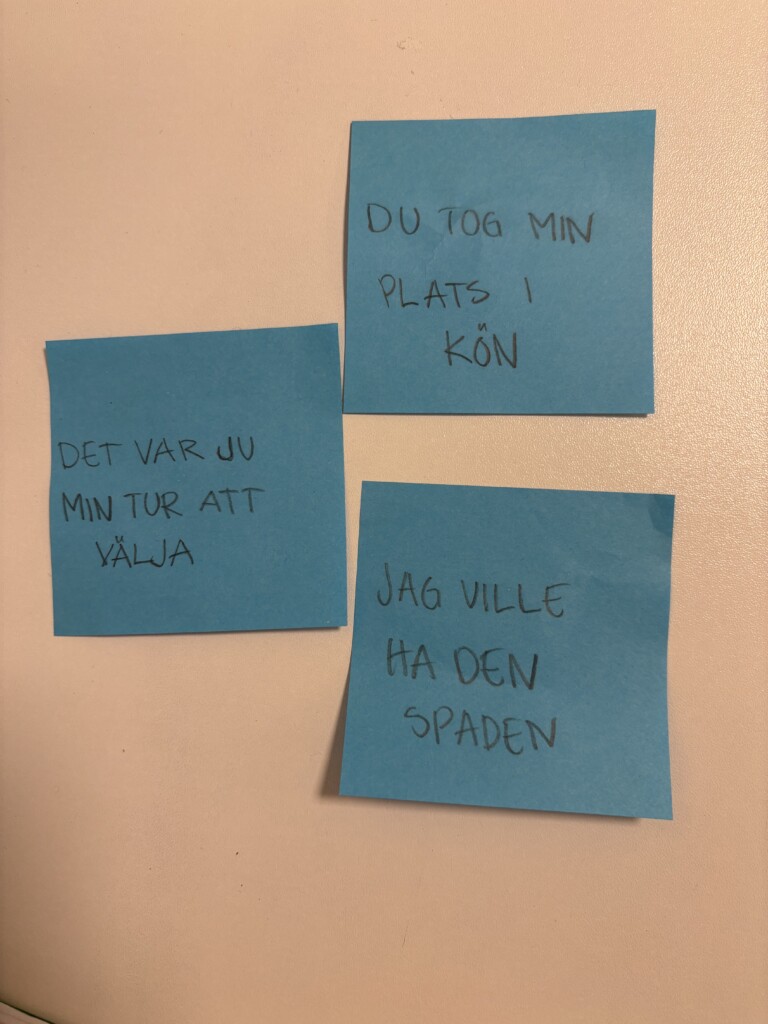 DU TOG MIN
PLATS I
KÖN
DET VAR JU
MIN TUR ATT
VÄLJA
JAG VILLE
HA DEN
SPADEN